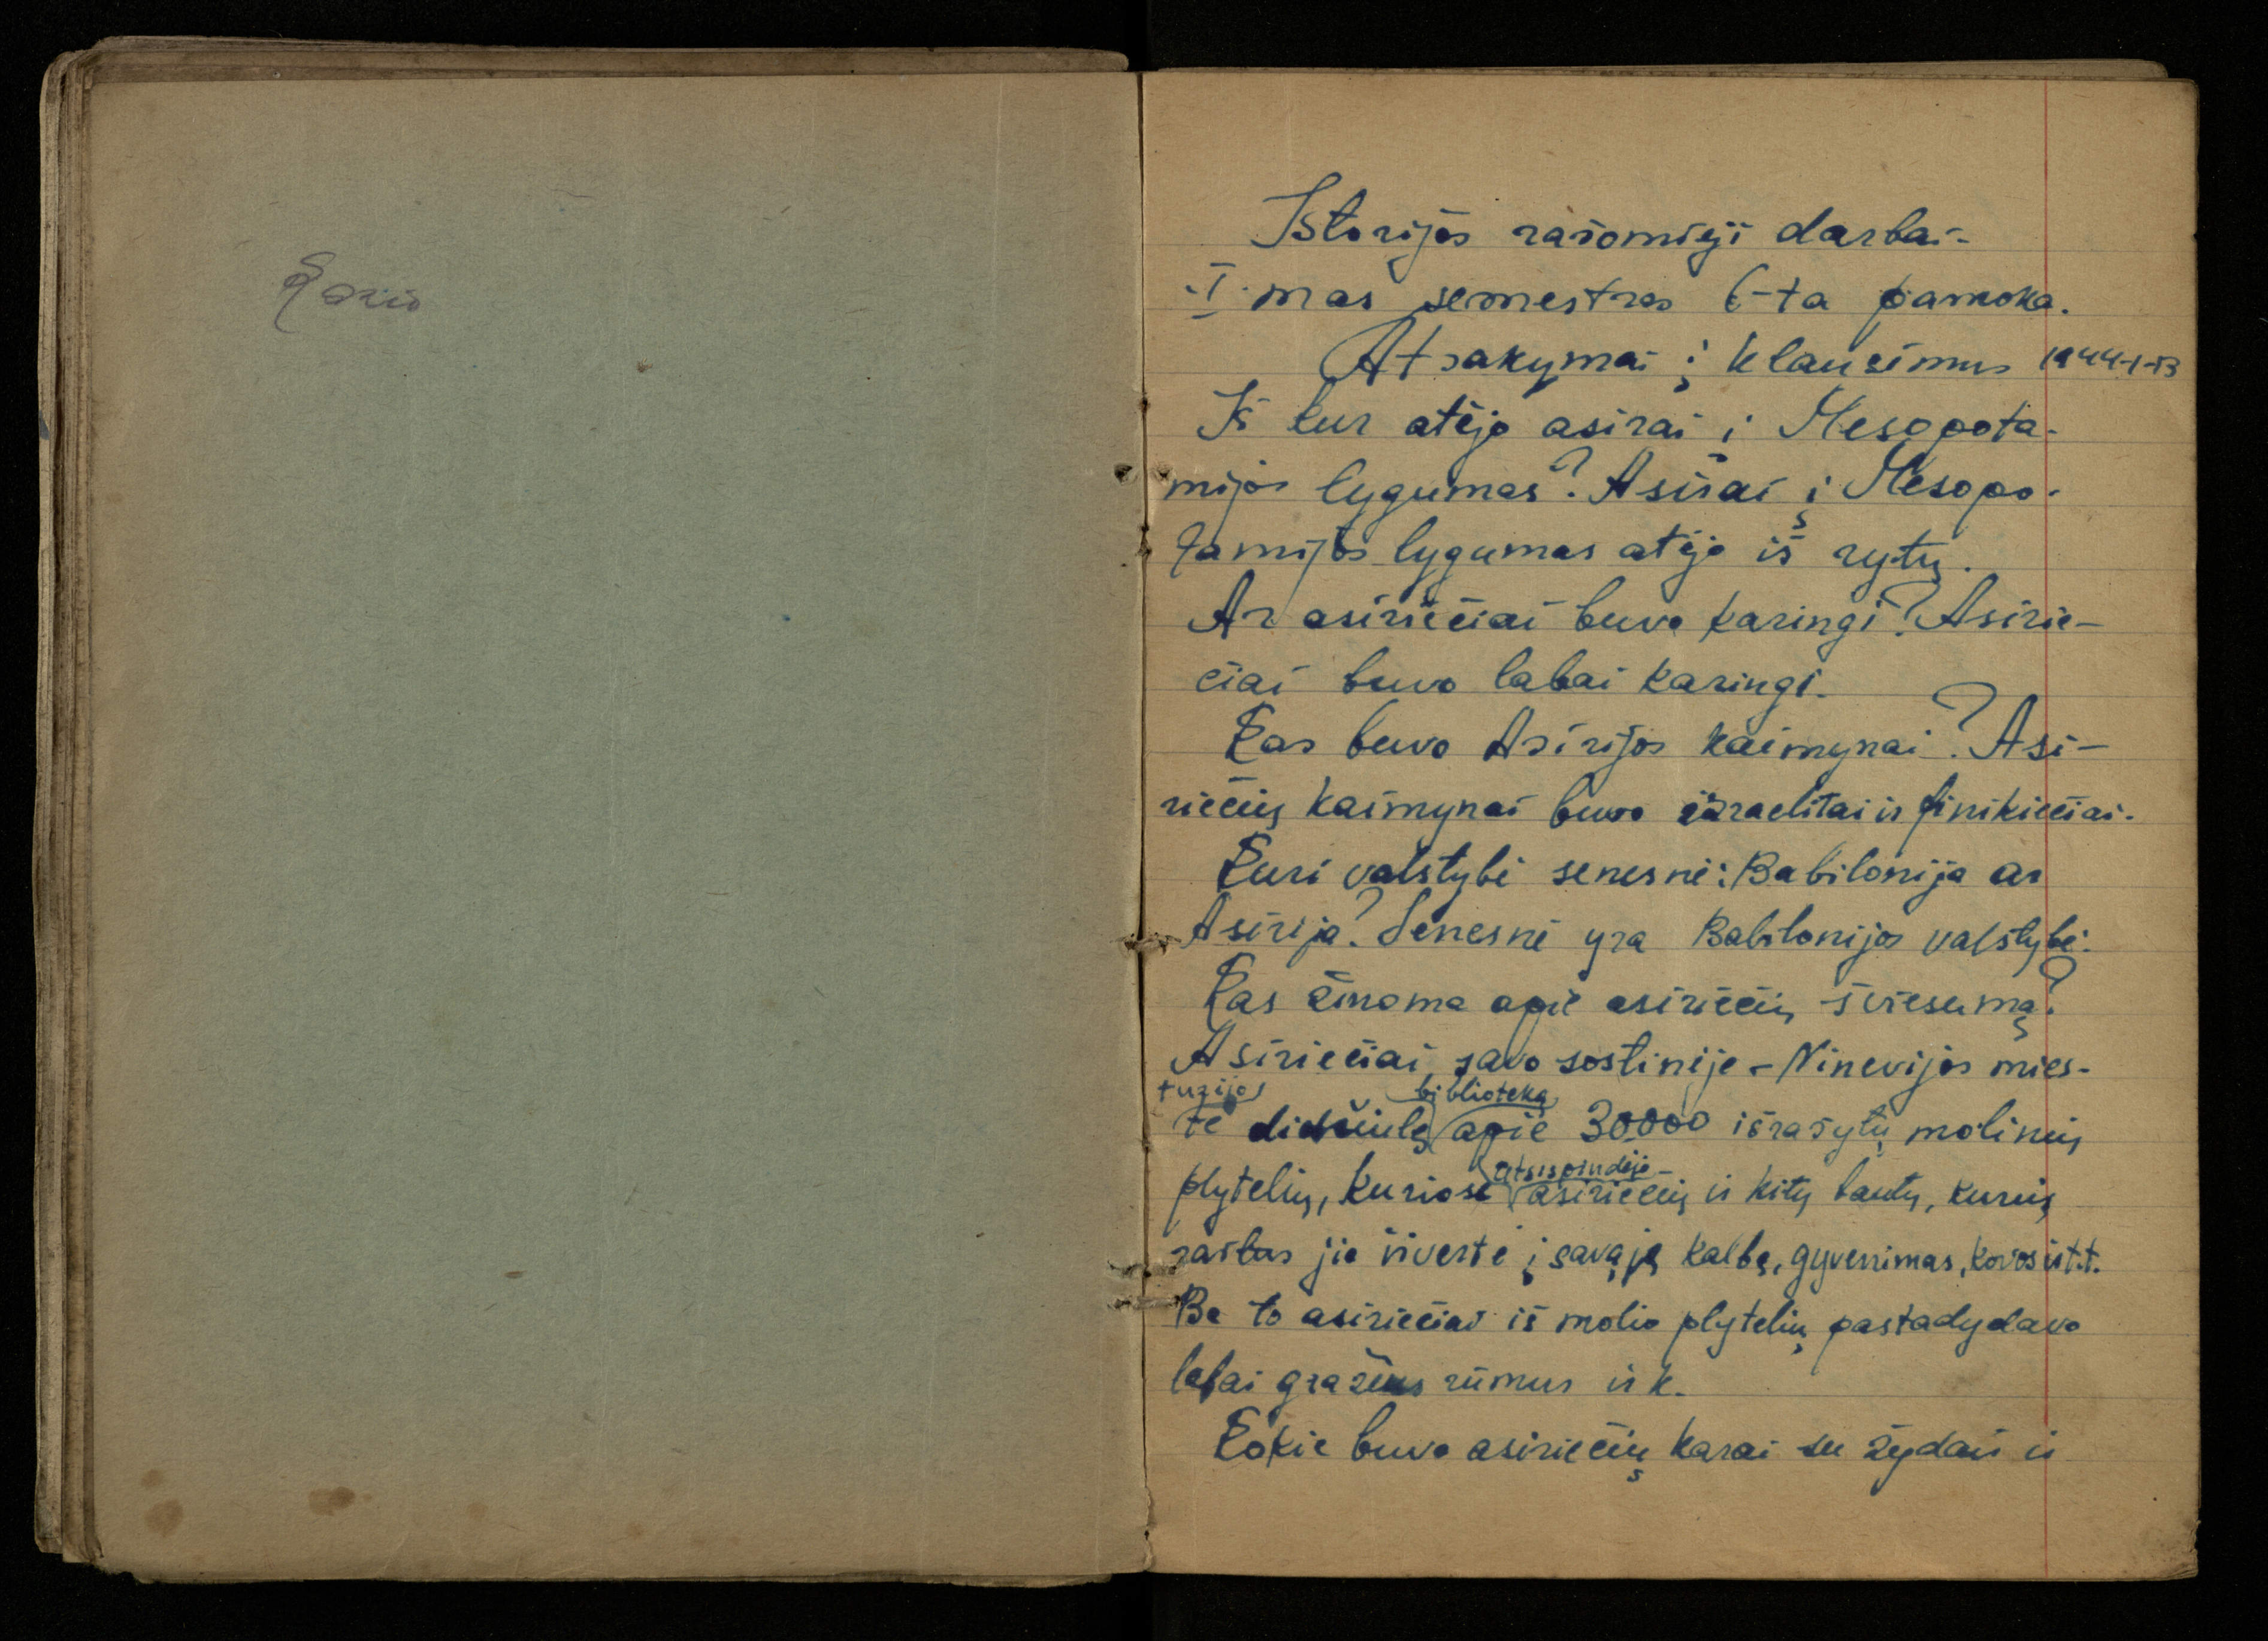 Kario
Istorijos rašomieji darbai-
I-mas semestras 6-ta pamoka.
Atsakymai į klausimus 1944-I-13
Iš kur atėjo asirai į Mesopota-
mijos lygumas? Asirai į Mesopo-
tamijos lygumas atėjo iš rytų.
Ar asiriečiai buvo karingi? Asirie-
čiai buvo labai karingi.
Kas buvo Asirijos kaimynai? Asi-
riečių kaimynai buvo izraelitai ir finikiečiai.
Kuri valstybė senesnė: Babilonija ar
Asirija? Senesnė yra Babilonijos valstybė.
Kas žinoma apie asiriečių šviesumą?
Asiriečiai savo sostinėje - Ninevijos mies-
turėjo biblioteką
te didžiulę apie 30000 išrašytų molinių
atsispindėjo
plytelių, kuriose asiriečių ir kitų tautų, kurių
raštus jie išvertė į savąją kalbą, gyvenimas, kovos ir t.t.
Be to asiriečiai iš molio plytelių pastadydavo
labai gražius rūmus ir k.
Kokie buvo asiriečių karai su žydais ir